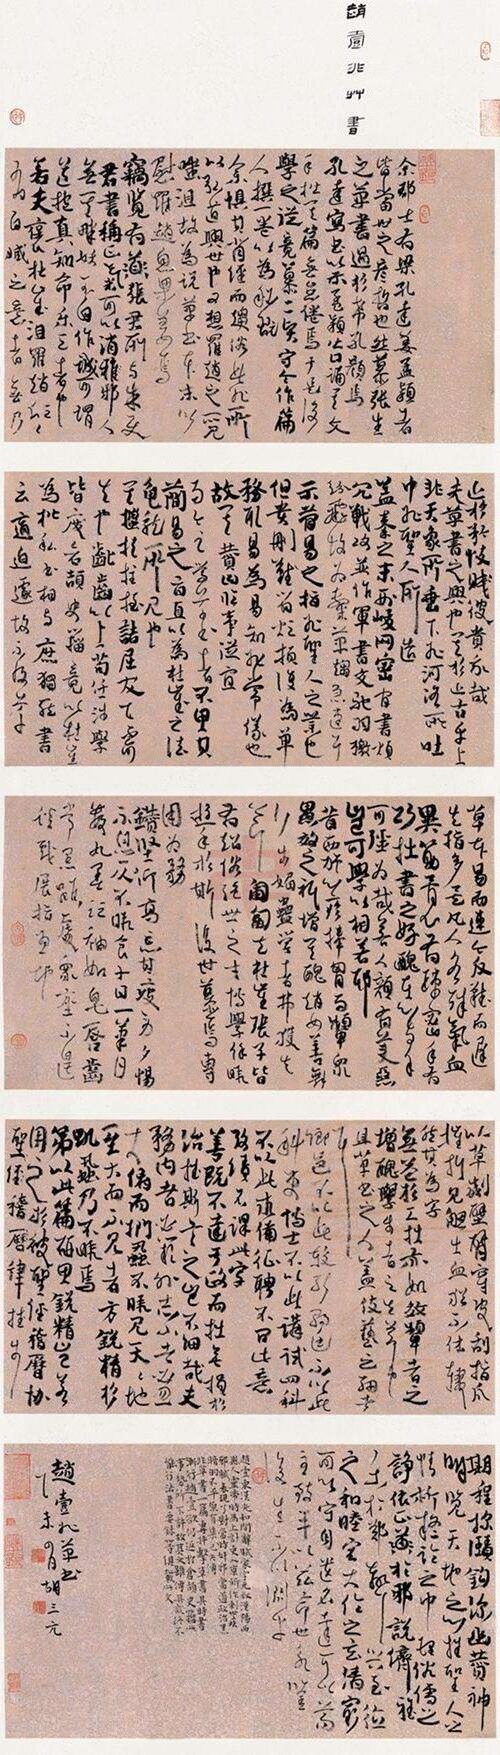 趙壹非艸書
余郡士有梁孔達姜孟穎者
皆當世之彥哲也然慕張生
之草書過於希孔顏焉
孔達寫書以示孟穎皆口誦其文
手楷其篇無怠倦焉于是後
學之徒競慕二賢守令作篇
人撰一卷以為秘玩
余懼其背經而趨俗此非所
以弘道興世也又想羅趙之所見
嗤沮故為說草書本末以
慰羅趙息梁姜焉
竊覽有道張君所與朱使
君書稱正氣可以消邪人
無其釁妖不自作誠可謂
信道抱真知命樂天者也
若夫褒杜崔沮羅趙忻忻
有自臧之意者無乃
近於矜伎賤彼貴我哉
夫草書之興也其於近古乎上
非天象所垂下非河洛所吐
中非聖人所造
蓋秦之末刑峻网密官書煩
冗戰攻並作軍書交馳羽檄
紛飛故為隸草趨急速耳
示簡易之指非聖人之業也
但貴刪難省煩損復為單
務取易為易知非常儀也
故其贊曰臨事從宜
而今之學草書者不思其
簡易之旨直以為杜崔之法
龜龍所見也
其扶拄桎詰屈犮乙不可
失也齓齒以上苟任涉學
皆廢倉頡史籀竟以杜崔
為楷私書相與庶獨就書
云適迫遽故不及草
草本易而速今反難而遲
失指多矣凡人各殊氣血
異筋骨心有疏密手有
巧拙書之好醜在心與手
可強為哉若人顏有美惡
豈可學以相若耶
昔西施心疹捧胸而顰眾
愚效之祇增其醜趙女善舞
行步媚蠱學者弗獲失
節匍匐夫杜崔張子皆
有超俗絕世之才博學餘暇
遊手於斯後世慕焉專
用為務
鑽堅仰高忘其疲勞夕惕
不息仄不暇食十日一筆月
數丸墨領袖如皂唇齒
常黑雖處眾座不遑
談戲展指畫地
以草劌壁臂穿皮刮指爪
摧折見䚡出血猶不休輟
然其為字
無益於工拙亦如效顰者之
增醜學步者之失節也
且草書之人蓋伎藝之細者
耳
鄉邑不以此較能朝廷不以此
科吏博士不以此講試四科
不以此求備徵聘不問此意
考績不課此字
善既不達于政而拙無損於
治推斯言之豈不細哉夫
務內者必闕外志小者必忽
大俯而捫蝨不暇見天天地
至大而不見者方銳精於
蟣蝨乃不暇焉
第以此篇研思銳精豈若
用之於彼聖經稽曆協
律推步
期程探賾鉤深幽贊神
明覽天地之心推聖人之
情析疑論之中理俗儒之
諍依正道於邪說儕雅
樂於鄭聲興至德
之和睦宏大倫之玄清窮
可以守身遺名達可以尊
主致平以茲命世永鑒
後生不以淵乎
趙壹非草書
丁未四月胡三元